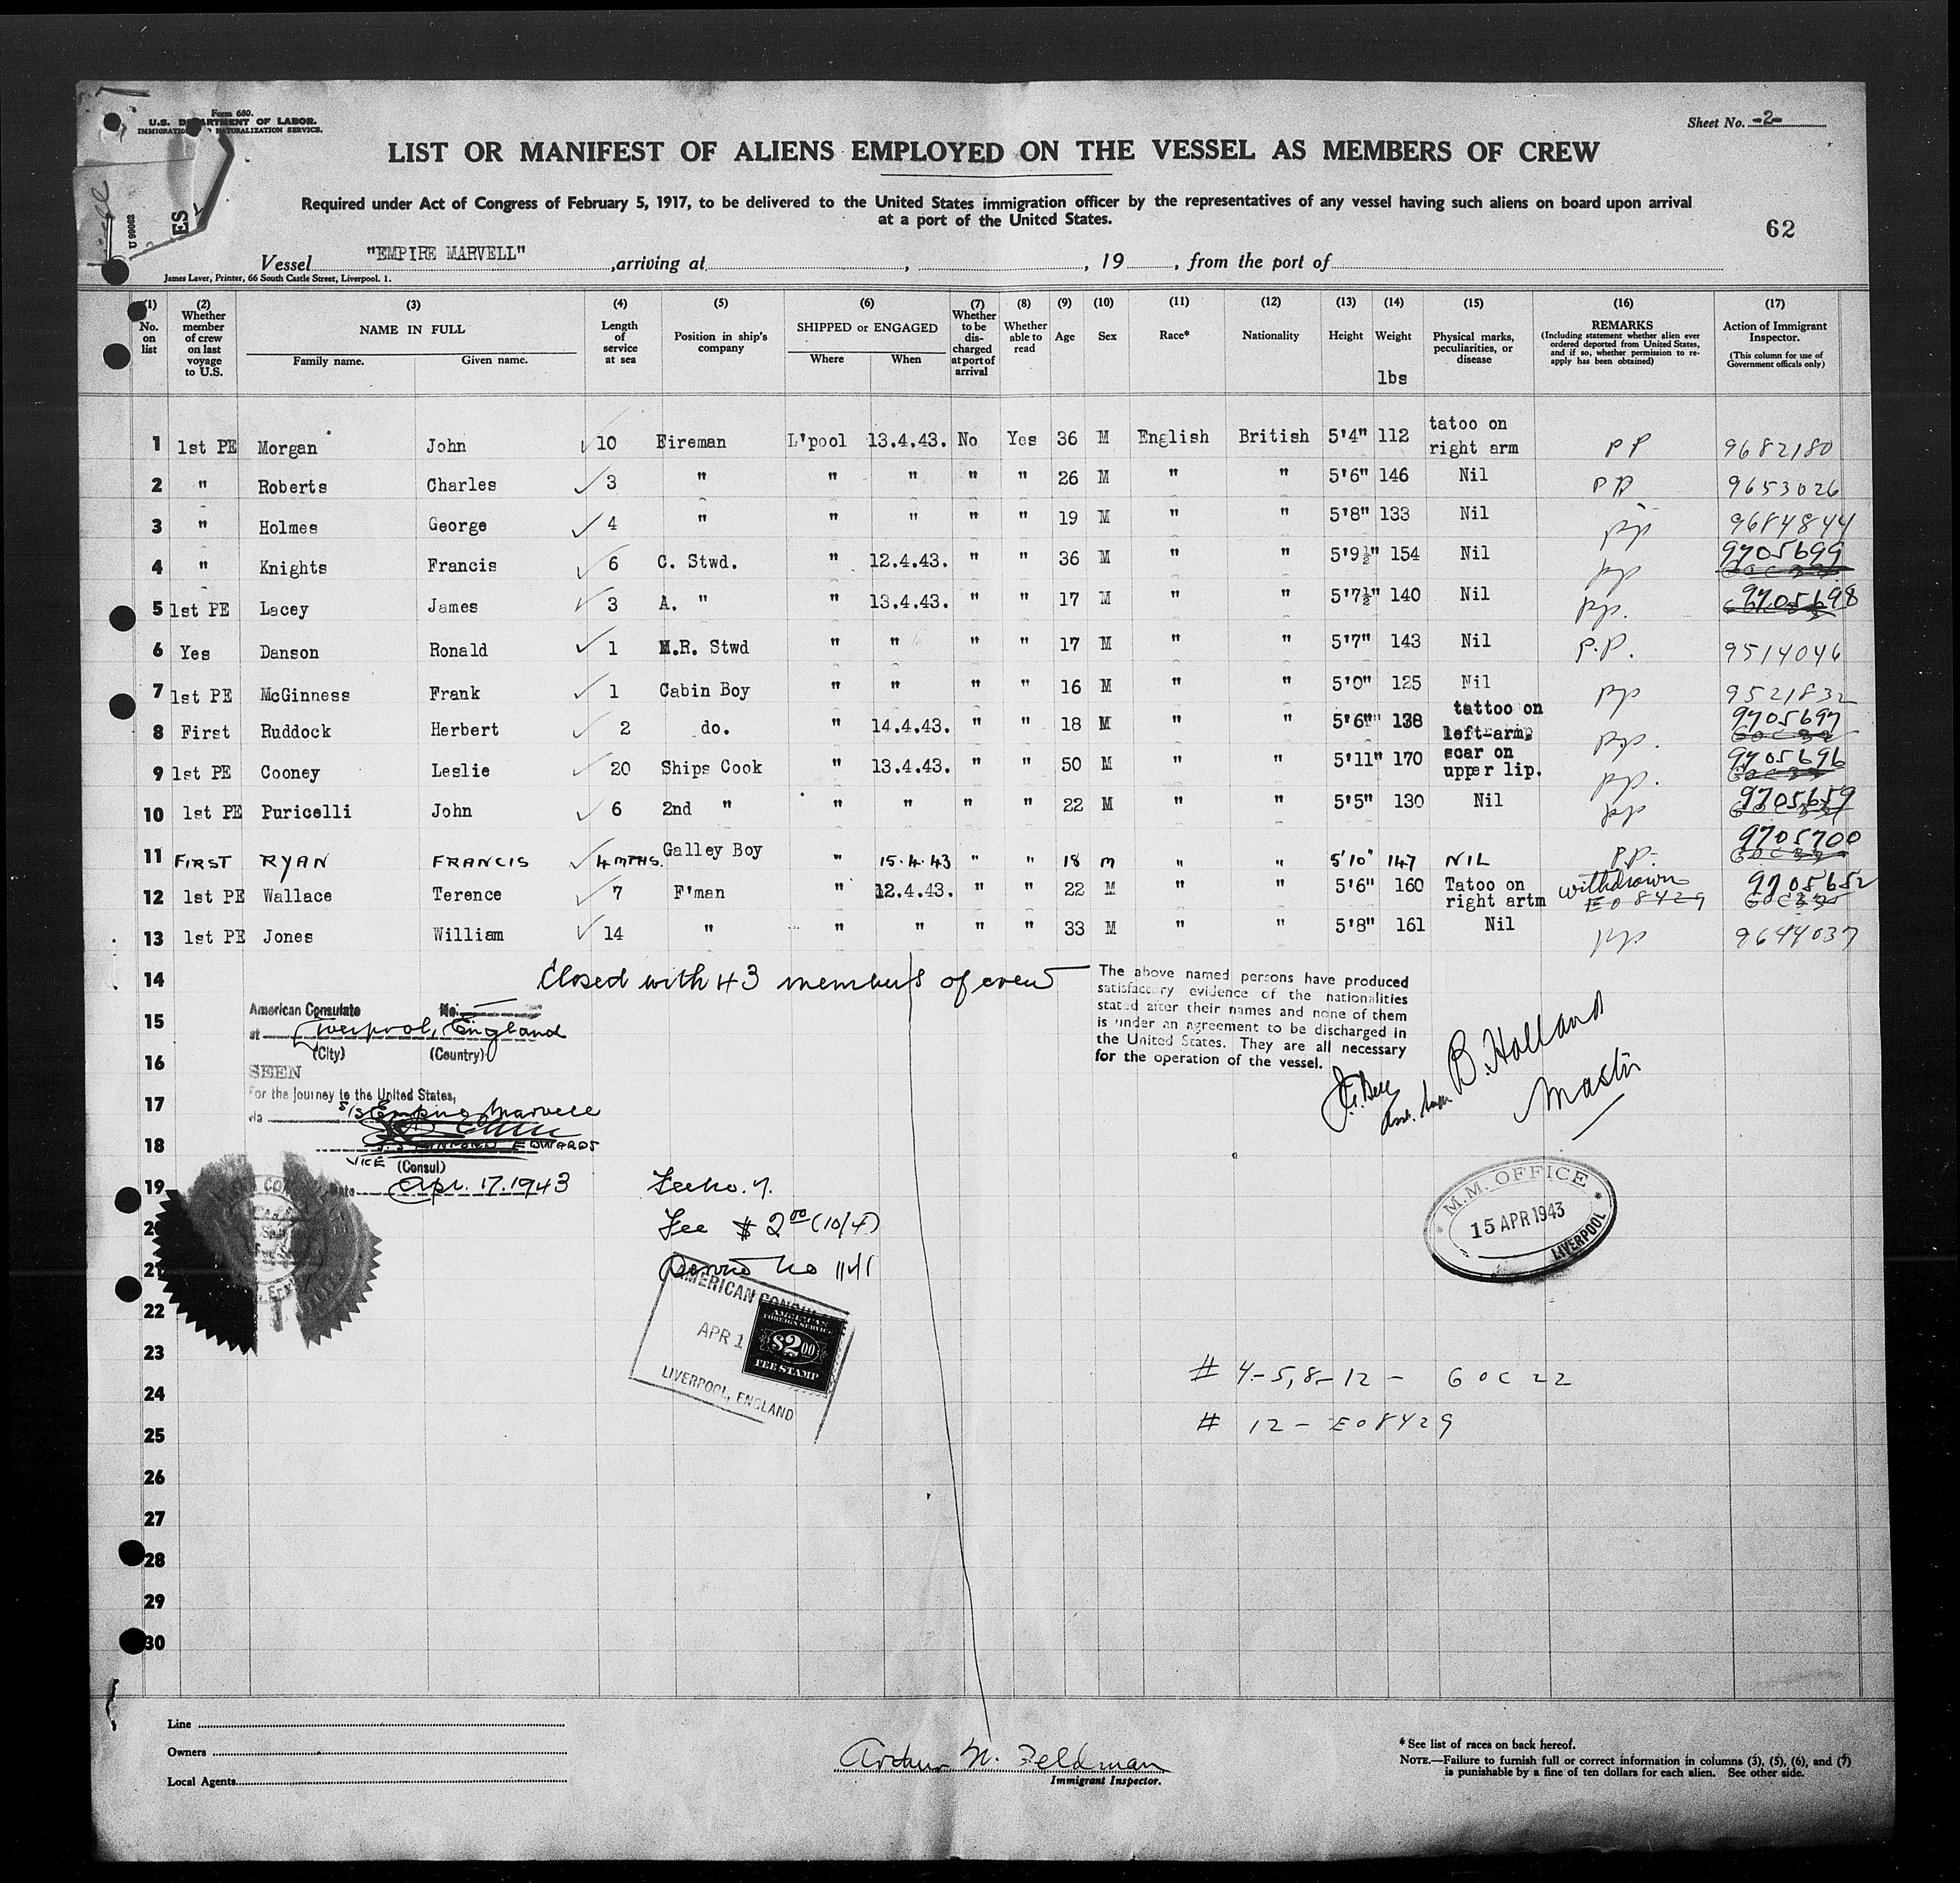 Form 680.
U.S. DEPARTMENT OF LABOR.
IMMIGRATION NATURALIZATION SERVICE.
Sheet No. -2-
LIST OR MANIFEST OF ALIENS EMPLOYED ON THE VESSEL AS MEMBERS OF CREW
Required under Act of Congress of February 5, 1917, to be delivered to the United States immigration officer by the representatives of any vessel having such aliens on board upon arrival
at a port of the United States.
62
U 99062
ES
Vessel "EMPIRE MARVELL" ,arriving at , , 19 , from the port of
James Laver, Printer, 66 South Castle Street, Liverpool. 1.
(1) No. on list
(2) Whether member of crew on last voyage to U.S.
(3) NAME IN FULL
Family name. Given name.
(4) Length of service at sea
(5) Position in ship's company
(6) SHIPPED or ENGAGED
Where When
(7) Whether to be discharged at port of arrival
(8) Whether able to read
(9) Age
(10) Sex
(11) Race*
(12) Nationality
(13) Height
(14) Weight
lbs
(15) Physical marks, peculiarities, or disease
(16) REMARKS
(Including statement whether alien ever ordered deported from United States, and if so, whether permission to re-apply has been obtained)
(17) Action of Immigrant Inspector.
(This column for use of Government officals only)
1 1st PE Morgan John 10 Fireman L'pool 13.4.43. No Yes 36 M English British 5'4" 112 tatoo on right arm PP 9682180
2 " Roberts Charles 3 " " " " " 26 M " " 5'6" 146 Nil PP 9653026
3 " Holmes George 4 " " " " " 19 M " " 5'8" 133 Nil pp 9684844
4 " Knights Francis 6 C. Stwd. " 12.4.43. " " 36 M " " 5'9½" 154 Nil pp 9705699
5 1st PE Lacey James 3 A. " " 13.4.43. " " 17 M " " 5'7½" 140 Nil pp. 9705698
6 Yes Danson Ronald 1 M.R. Stwd " " " " 17 M " " 5'7" 143 Nil P.P. 9514046
7 1st PE McGinness Frank 1 Cabin Boy " " " " 16 M " " 5'0" 125 Nil pp 9521832
8 First Ruddock Herbert 2 do. " 14.4.43. " " 18 M " " 5'6" 138 tattoo on left-arm, pp. 9705697
9 1st PE Cooney Leslie 20 Ships Cook " 13.4.43. " " 50 M " " 5'11" 170 scar on upper lip. pp. 9705696
10 1st PE Puricelli John 6 2nd " " " " " 22 M " " 5'5" 130 Nil pp 9705659
11 FIRST RYAN FRANCIS 4 MTHS. Galley Boy " 15.4.43 " " 18 M " " 5'10" 147 NIL P.P. 9705700
12 1st PE Wallace Terence 7 F'man " 12.4.43. " " 22 M " " 5'6" 160 Tatoo on right artm withdrawn E08429 9705652
13 1st PE Jones William 14 " " " " " 33 M " " 5'8" 161 Nil pp 9644037
14
Closed with 43 members of crew
The above named persons have produced
satisfactory evidence of the nationalities
stated after their names and none of them
is under an agreement to be discharged in
the United States. They are all necessary
for the operation of the vessel.
B. Holland
Master
American Consulate No.
15
at Liverpool, England
(City) (Country)
16
SEEN
For the journey to the United States,
17
via S/S Empire Marvell
18
EDWARDS
VICE (Consul)
19
Date Apr. 17. 1943
Fee No. 7.
20
Fee $ 2.00 (10/4)
21
Service No 1141
AMERICAN CONSUL
APR 1
LIVERPOOL, ENGLAND
AMERICAN
FOREIGN SERVICE
$2.00
FEE STAMP
M.M. OFFICE
15 APR 1943
LIVERPOOL
22
23
# 4-5, 8-12 - 60C22
24
# 12 - E08429
25
26
27
28
29
30
Line
Owners
Local Agents
Arthur N. Feldman
Immigrant Inspector.
* See list of races on back hereof.
NOTE.—Failure to furnish full or correct information in columns (3), (5), (6), and (7)
is punishable by a fine of ten dollars for each alien. See other side.